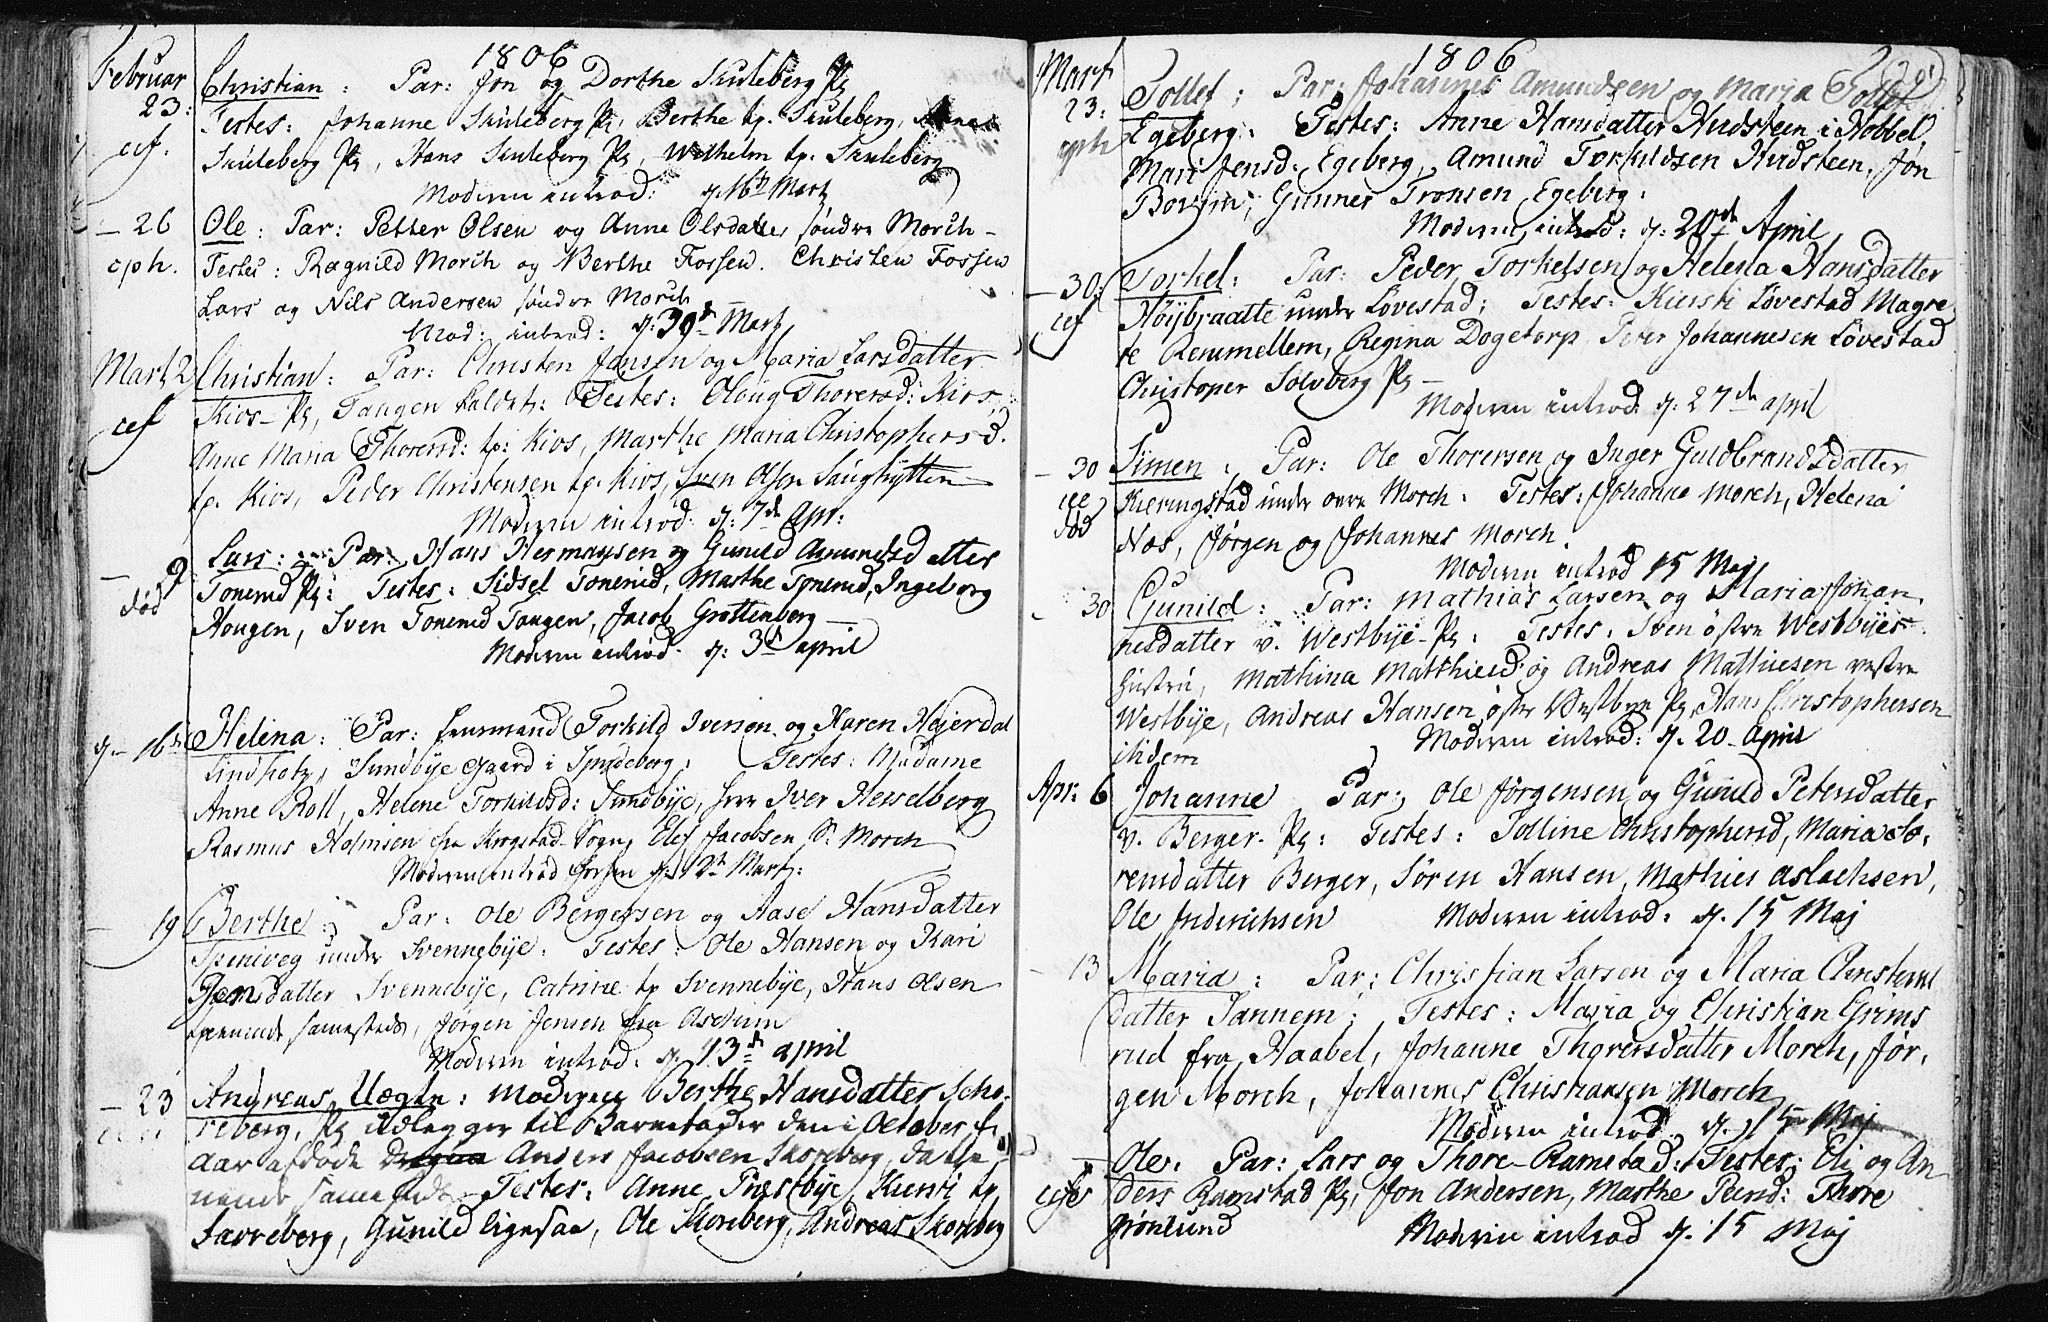 1806
Februar Christian: Par: Jon og Dorthe Skuleberg Pg
23: Testes: Johanne Skuleberg Pg, Berthe tp. Skuleberg, Anne
cef. Skuleberg Pg, Hans Skuleberg Pg, Wilhelm tp. Skuleberg
Moderen introd: d. 16 Martz
— 26 Ole: Par: Petter Olsen og Anne Olsdatter søndre Morch –
cph. Testes: Ragnild Morch og Berthe Fossen. Christen Fossen
Lars og Nils Andersen søndre Morch
Mod: introd: d: 30 Mart
Mart 2 Christian: Par: Christen Jansen og Maria Larsdatter
cef Kios- Pg, Taugen kaldet: Testes: Oloug Thoresd: Kios,
Anne Maria Thoresd: tp: Kios, Marthe Maria Christophersd.
tp. Kios, Peder Christensen tp. Kios, Sven Olsen Saughytten
Moderen introd. d: 7de Apr:
— 9 Lars: Par: Hans Hermansen og Gunild Amundsdatter
død Tonerud Pg: Testes: Sidsel Tonerud, Marthe Tonerud, Ingeborg
Hougen, Sven Tonerud Taugen, Jacob Grottenberg —
Moderen introd. d: 3d april
d – 16 Helena: Par: Lensmand Torkild Iverson og Karen Hejerdal
Lindholz, Sundbye Gaard i Spydeberg: Testes: Madame
Anne Roll, Helene Torkildsd: Sundbye, Herr Iver Hesselberg
Rasmus Holmsen fra Krogstad Sogn, Elef Jacobsen S. Morch
Moderen introd d. 12 Mart:
— 19 Berthe: Par: Ole Bergersen og Aase Hansdatter
under Svennebye. Testes: Ole Hansen og Kari
Jensdatter Svennebye, Catrine tp Svennebye, Hans Olsen
samesteds, Jørgen Jensen fra Aschum
Moderen introd: d. 13de april
— 23 Andreas Uægte: Moderen Berthe Hansdatter Sko-
reberg, Pg udlegger til Barnefader den i October f.
Aar afdøde Anders Jacobsen Skoreberg, da tie-
nende samesteds – Testes: Anne Prestbye, Kiersti tp
Favreberg, Gunild ligesaa, Ole Skoreberg, Andreas Skoreberg
1806
Mart Tollef: Par: Johannes Amundsen og Marja Tollefsd.
23: Egeberg: Testes: Anne Hansdatter Hudsteen i Hobbel,
cph Mari Jensd: Egeberg, Amund Torkildsen Hudsteen, Jon
Borum, Gunner Tronsen Egeberg:
Moderen introd: d: 20de April
— 30: Torkel: Par: Peder Torkelsen og Helena Hansdatter
cef Høijbraatte under Løvestad: Testes: Kiersti Løvestad Magre-
te Remmellem, Regina Dogetorp, Peter Johannesen Løvestad
Christoper Solvberg Pg –
Moderen introd: d: 27de april
— 30 Simen: Par: Ole Thorersen og Inger Guldbrandsdatter
død Kieringstad under øvre Morch: Testes: Johanna Morch, Helena
Næs, Jørgen og Johannes Morch.
Moderen introd 15 Maj
— 30 Gunild: Par: Mathias Larsen og Maria Johan
nesdatter v. Westbye- Pg: Testes: Sven østre Westbyes
Hustru, Mathina Matthiesd: og Andreas Mathiesen vestre
Westbye, Andreas Hansen østre Vestbye Pg, Hans Christophersen
ibidem Moderen introd: d. 20 April
Apr: 6 Johanne Par: Ole Jørgensen og Gunild Petersdatter
v. Berger. Pg: Testes: Tolline Christophersd, Maria Sø-
rensdatter Berger, Søren Hansen, Mathies Aslachsen,
Ole Friderichsen Moderen introd: d. 15 Maj
— 13 Maria: Par: Christian Larsen og Maria Christens
datter Sannem: Testes: Maria og Christian Grims
rud fra Haabel, Johanne Thorersdatter Morch, Jør-
gen Morch, Johannes Christiansen Morch
Moderen introd: d. 15 Maj
— Ole: Par: Lars og Thore Ramstad: Testes: Eli og An
ders Ramstad Pg, Jon Andersen, Marthe Peersd: Thore
Grønlund Moderen introd d. 15 Maj